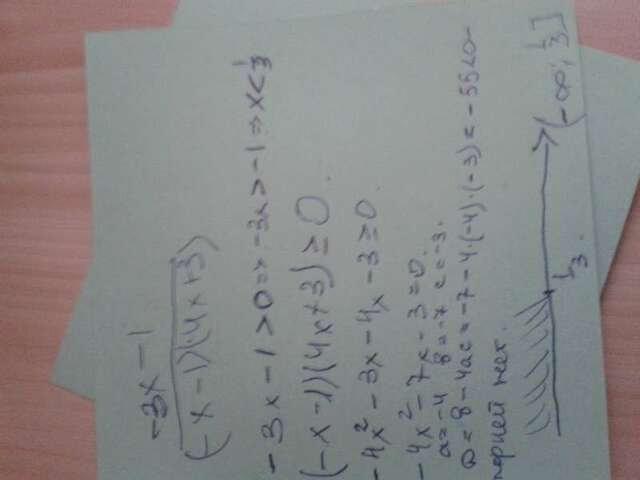 -3x-1
(-x-1)(4x+3)
-3x-1>0 => -3x>-1 => x<1/3
(-x-1)(4x+3)≥0.
-4x²-3x-4x-3≥0.
-4x²-7x-3=0.
a=-4 в=-7 с=-3.
D=в-4ас=-7-4·(-4)·(-3)=-55<0-
корней нет.
1/3. (-∞; 1/3]